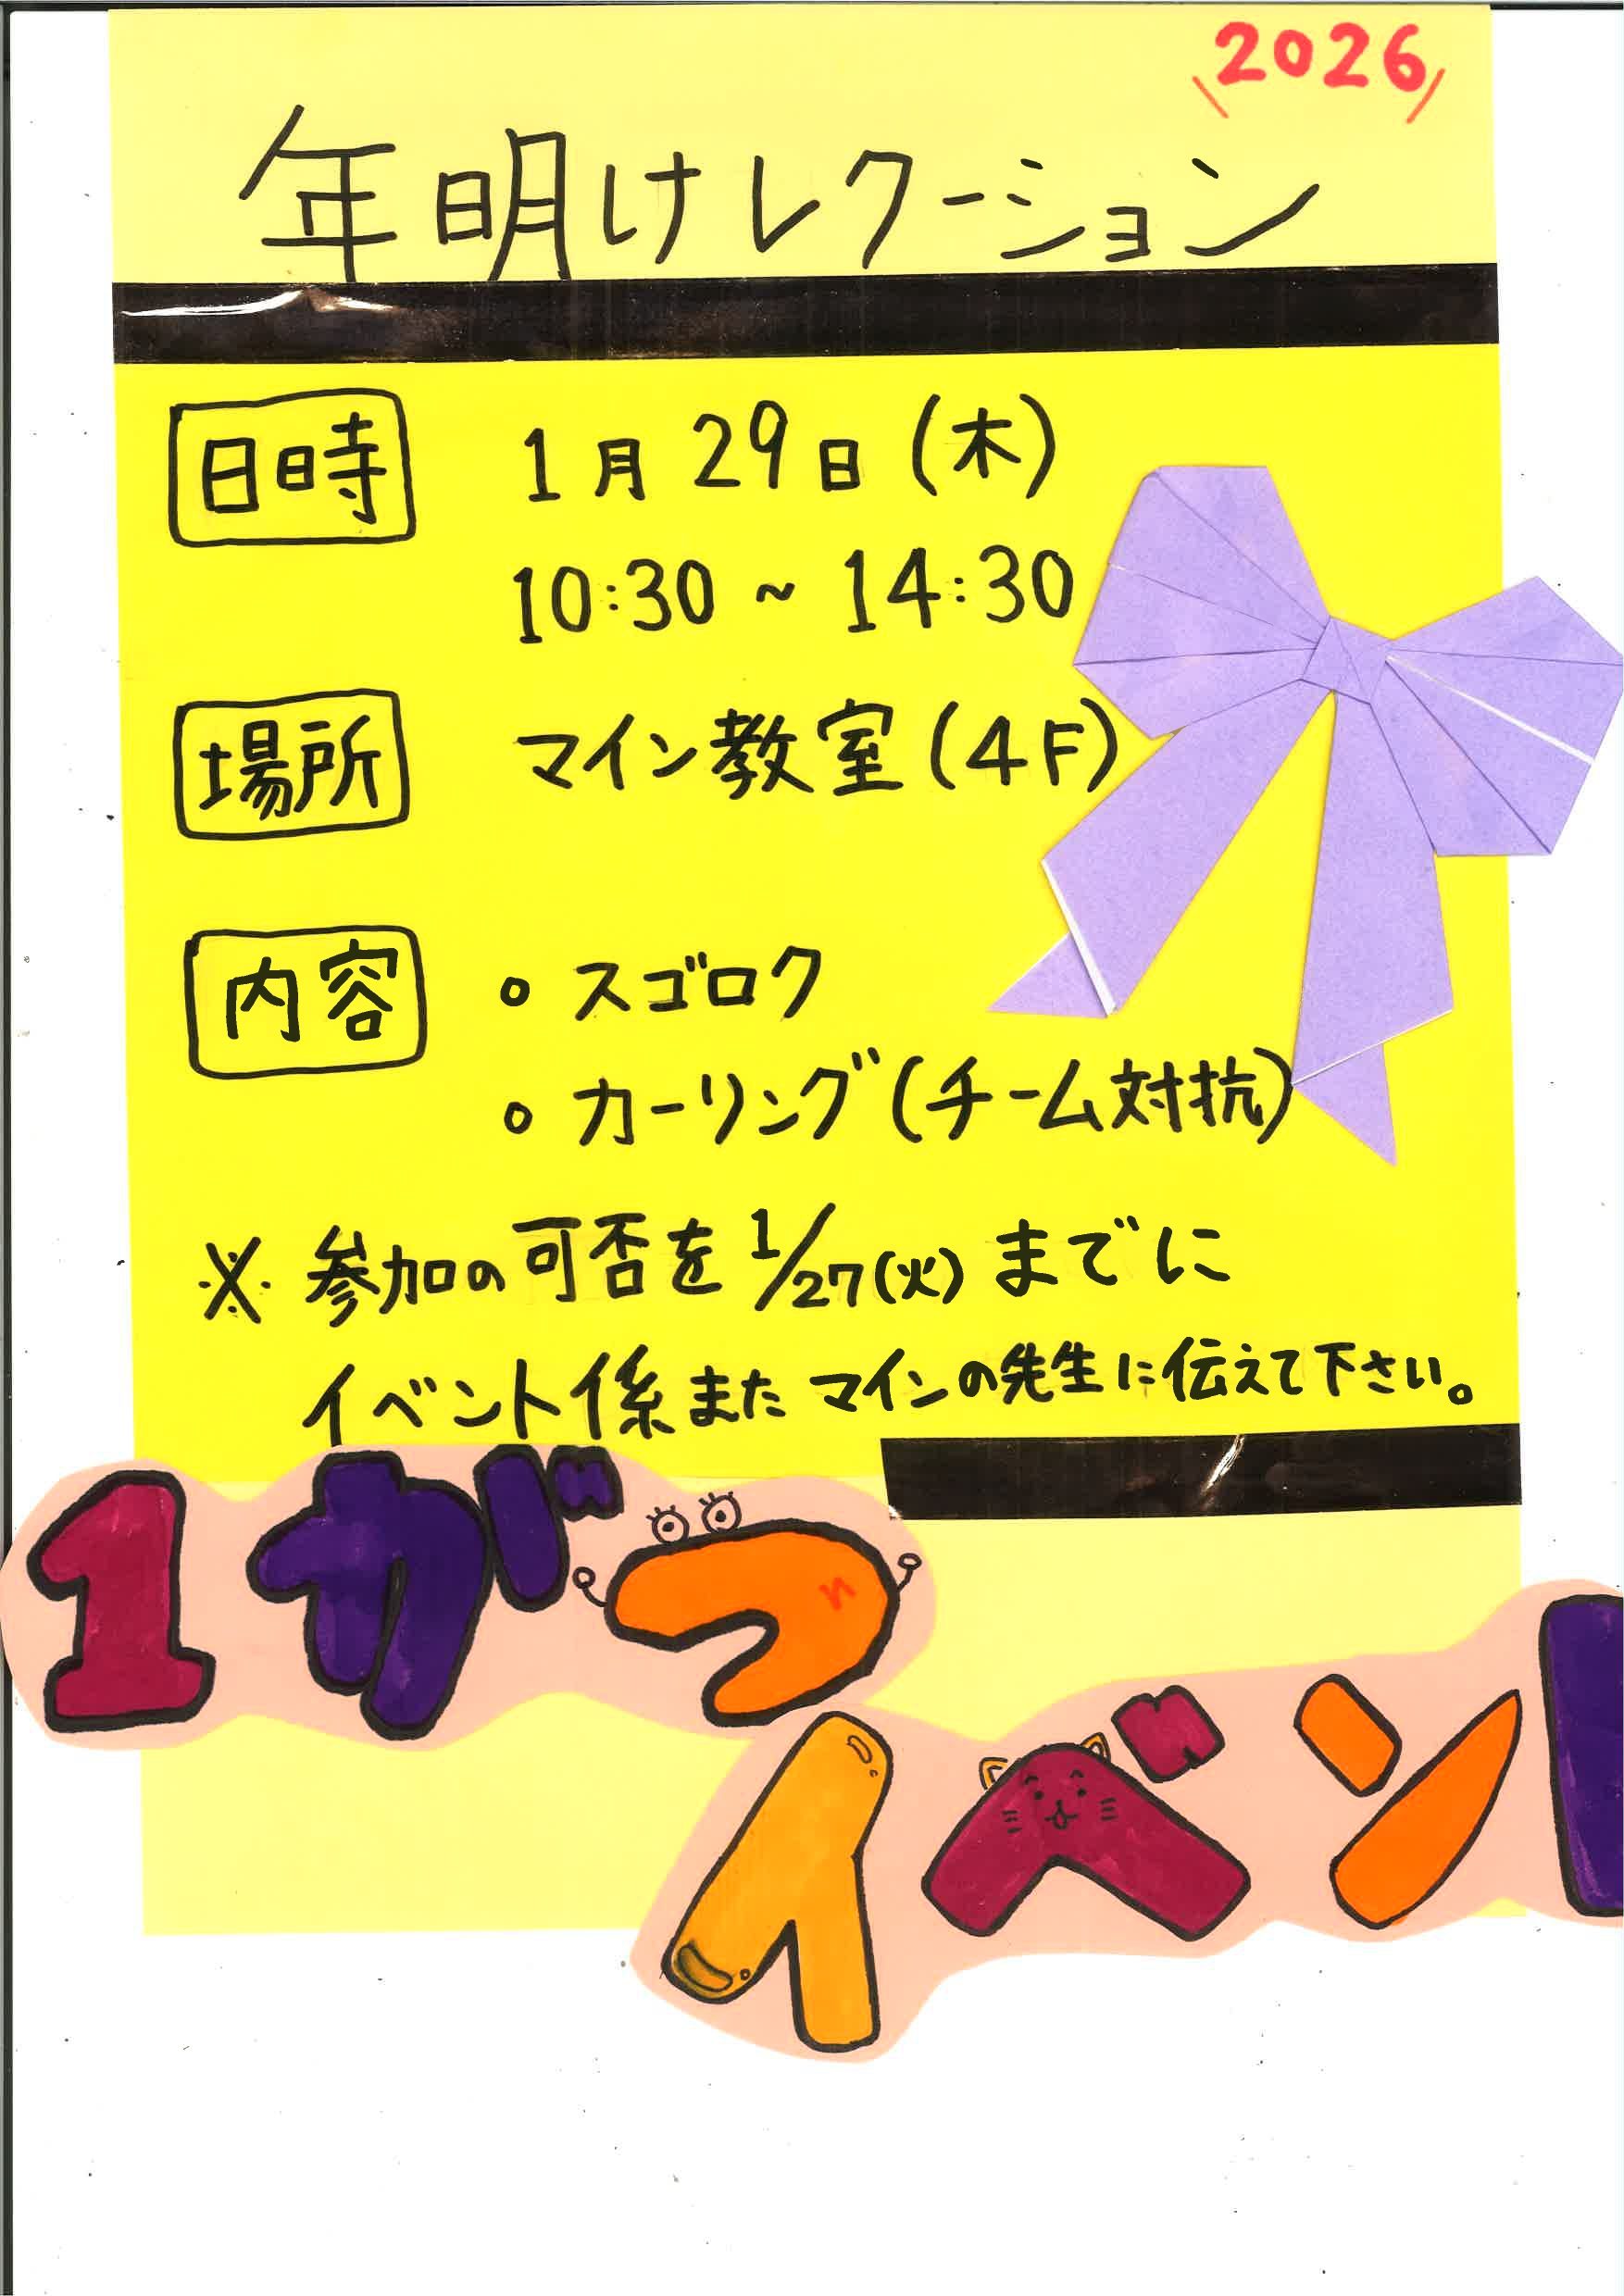 2026
年明けレクーション
日時 1月29日(木)
10:30~14:30
場所 マイン教室(4F)
内容 ○スゴロク
○カーリング(チーム対抗)
※参加の可否を1/27(火)までに
イベント係またマインの先生に伝えて下さい。
1がつ
イベント